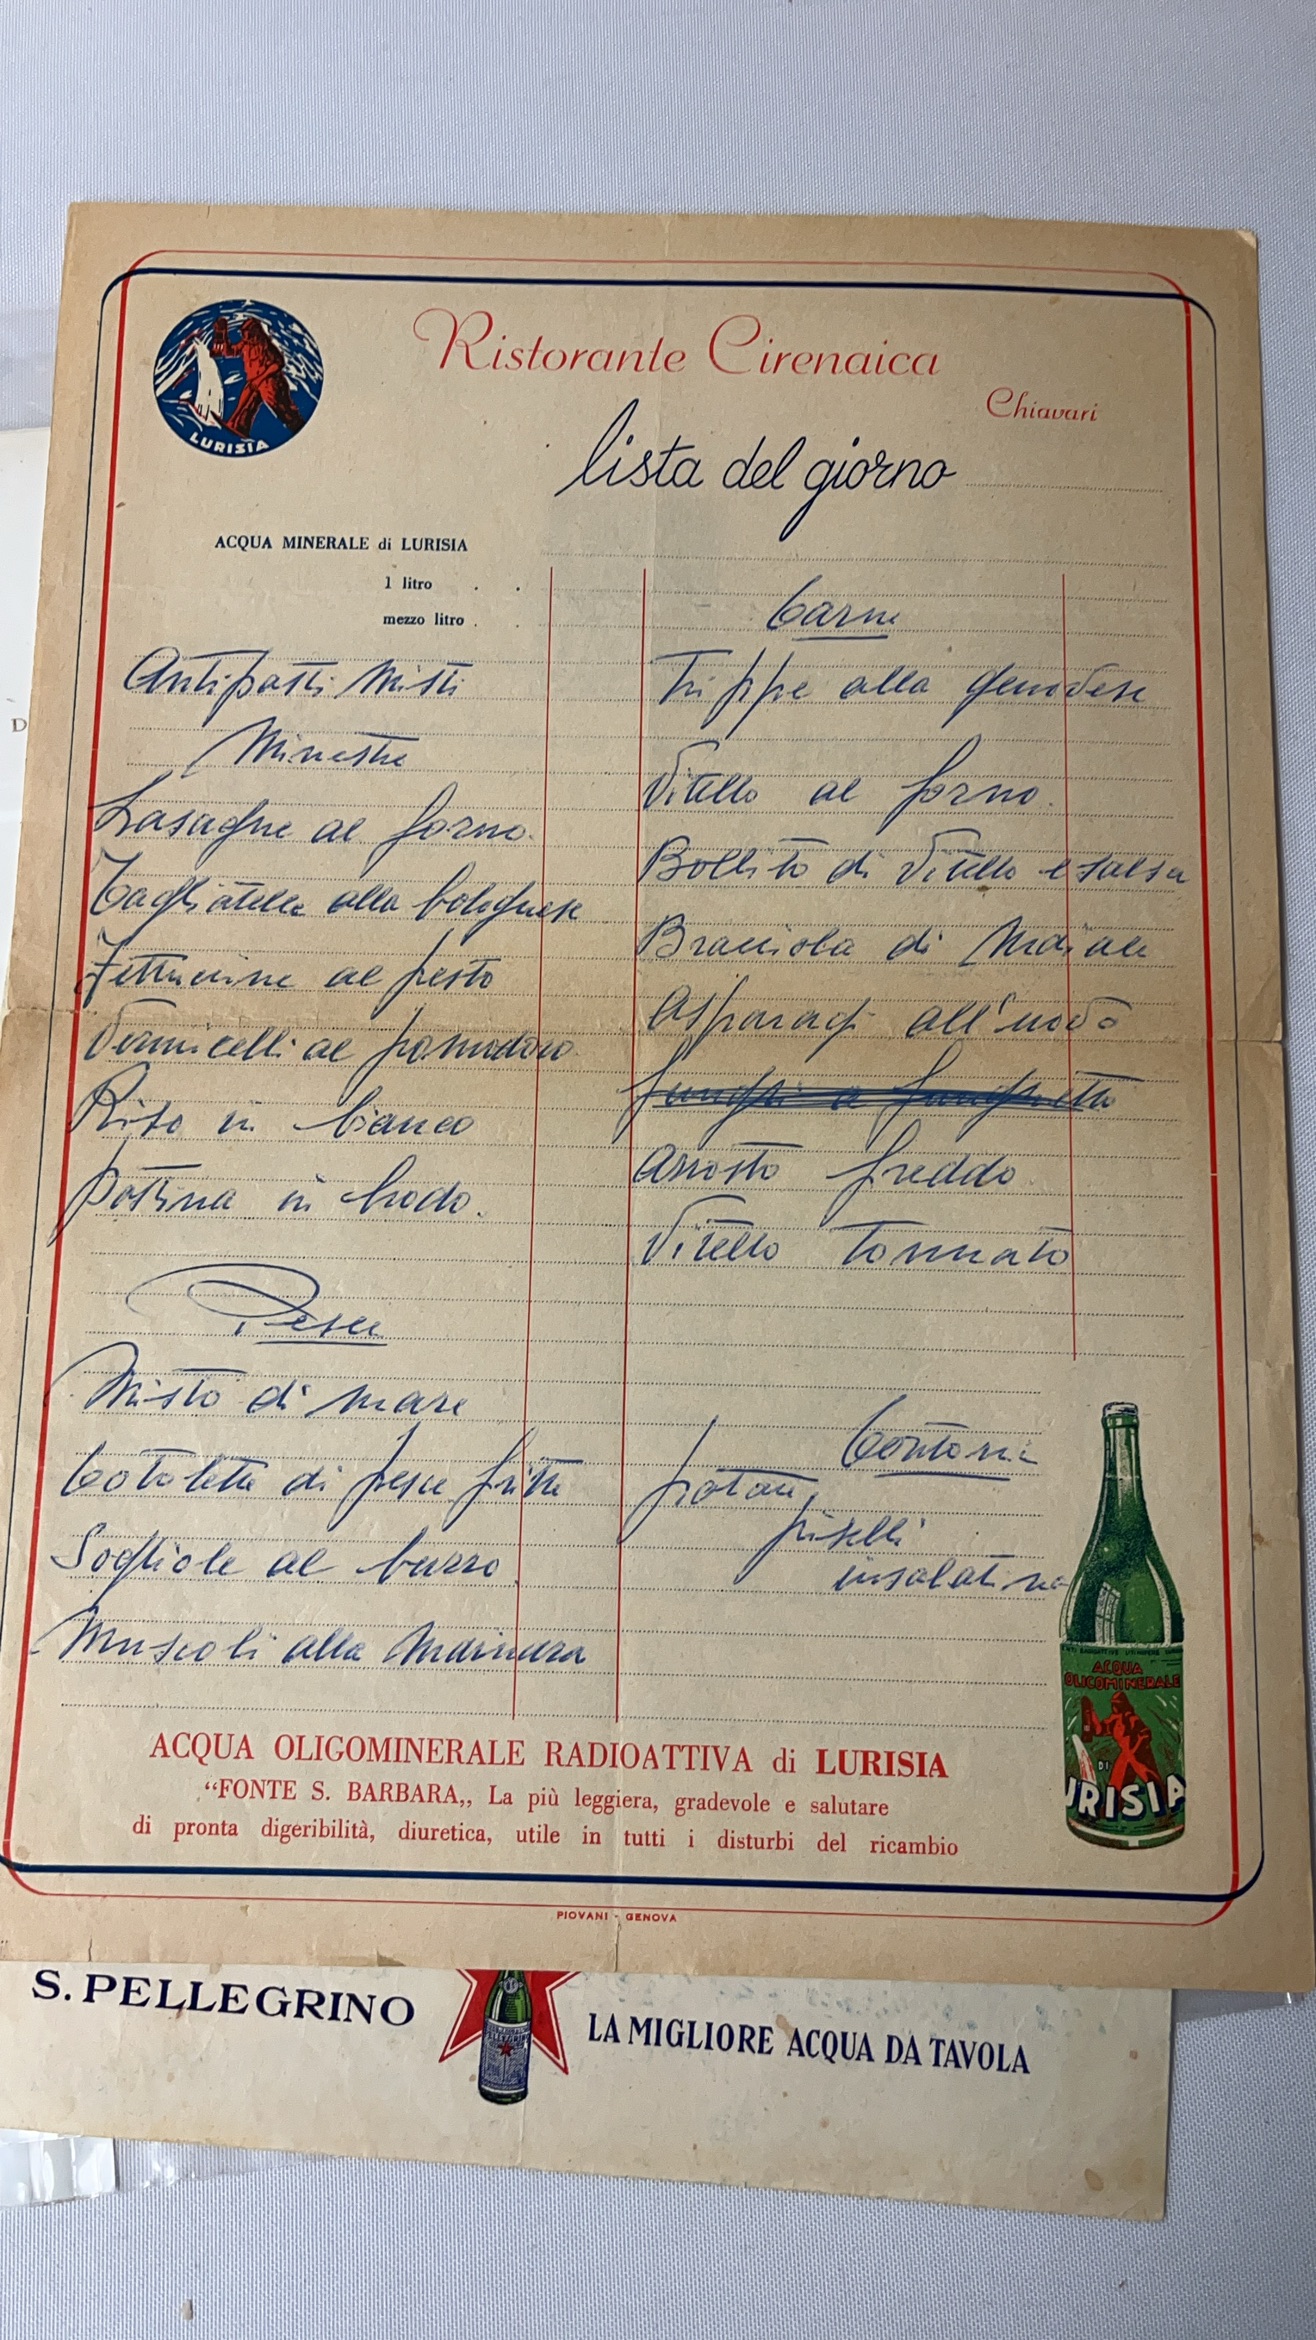 LURISIA
Ristorante Cirenaica
Chiavari
lista del giorno
ACQUA MINERALE di LURISIA
1 litro . .
mezzo litro .
Antipasti Misti
Minestre
Lasagne al forno.
Tagliatelle alla bolognese
Fettuccine al pesto
Vermicelli al pomodoro
Riso in bianco
Pastina in brodo.
Pesce
Misto di mare
Cotolette di pesce fritte
Sogliole al burro
Muscoli alla Marinara
Carne
Trippe alla genovese
Vitello al forno.
Bollito di Vitello e salsa
Braciola di Maiale
Asparagi all'uovo
funghi a funghetto
Arrosto freddo
Vitello Tonnato
Contorni
patate,
piselli
insalatina
ACQUA
OLIGOMINERALE
DI
URISIA
ACQUA OLIGOMINERALE RADIOATTIVA di LURISIA
“FONTE S. BARBARA„ La più leggiera, gradevole e salutare
di pronta digeribilità, diuretica, utile in tutti i disturbi del ricambio
PIOVANI - GENOVA
S. PELLEGRINO
LA MIGLIORE ACQUA DA TAVOLA
D